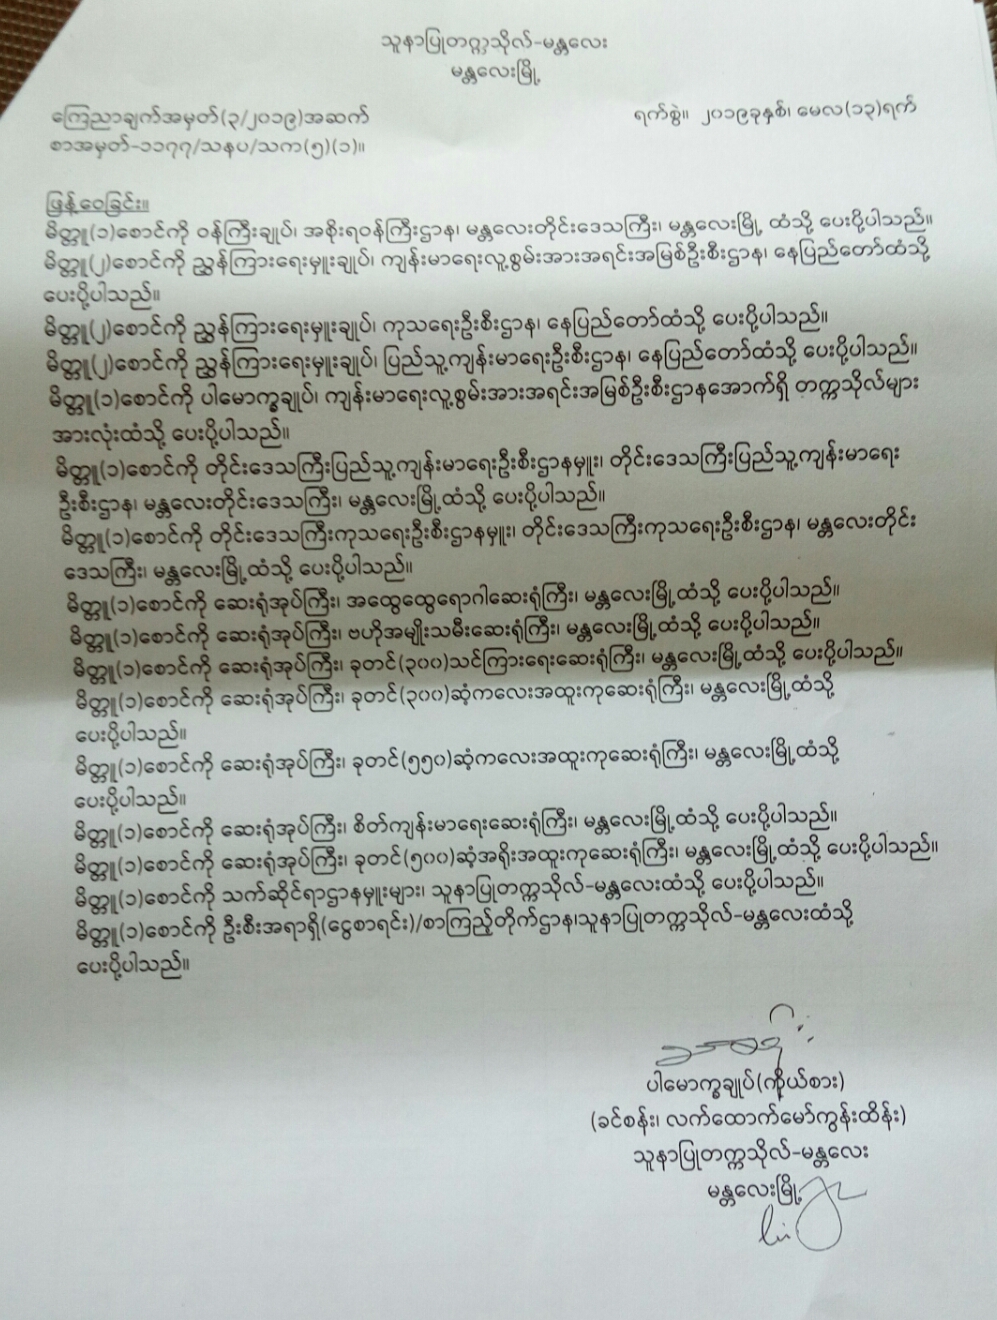 သူနာပြုတက္ကသိုလ်-မန္တလေး
မန္တလေးမြို့
ကြေညာချက်အမှတ်(၃/၂၀၁၉)အဆက်
ရက်စွဲ။ ၂၀၁၉ခုနှစ်၊ မေလ(၁၃)ရက်
စာအမှတ်-၁၁၇၇/သနပ/သက(၅)(၁)။
ဖြန့်ဝေခြင်း။
မိတ္တူ(၁)စောင်ကို ဝန်ကြီးချုပ်၊ အစိုးရဝန်ကြီးဌာန၊ မန္တလေးတိုင်းဒေသကြီး၊ မန္တလေးမြို့ ထံသို့ ပေးပို့ပါသည်။
မိတ္တူ(၂)စောင်ကို ညွှန်ကြားရေးမှူးချုပ်၊ ကျန်းမာရေးလူ့စွမ်းအားအရင်းအမြစ်ဦးစီးဌာန၊ နေပြည်တော်ထံသို့
ပေးပို့ပါသည်။
မိတ္တူ(၂)စောင်ကို ညွှန်ကြားရေးမှူးချုပ်၊ ကုသရေးဦးစီးဌာန၊ နေပြည်တော်ထံသို့ ပေးပို့ပါသည်။
မိတ္တူ(၂)စောင်ကို ညွှန်ကြားရေးမှူးချုပ်၊ ပြည်သူ့ကျန်းမာရေးဦးစီးဌာန၊ နေပြည်တော်ထံသို့ ပေးပို့ပါသည်။
မိတ္တူ(၁)စောင်ကို ပါမောက္ခချုပ်၊ ကျန်းမာရေးလူ့စွမ်းအားအရင်းအမြစ်ဦးစီးဌာနအောက်ရှိ တက္ကသိုလ်များ
အားလုံးထံသို့ ပေးပို့ပါသည်။
မိတ္တူ(၁)စောင်ကို တိုင်းဒေသကြီးပြည်သူ့ကျန်းမာရေးဦးစီးဌာနမှူး၊ တိုင်းဒေသကြီးပြည်သူ့ကျန်းမာရေး
ဦးစီးဌာန၊ မန္တလေးတိုင်းဒေသကြီး၊ မန္တလေးမြို့ထံသို့ ပေးပို့ပါသည်။
မိတ္တူ(၁)စောင်ကို တိုင်းဒေသကြီးကုသရေးဦးစီးဌာနမှူး၊ တိုင်းဒေသကြီးကုသရေးဦးစီးဌာန၊ မန္တလေးတိုင်း
ဒေသကြီး၊ မန္တလေးမြို့ထံသို့ ပေးပို့ပါသည်။
မိတ္တူ(၁)စောင်ကို ဆေးရုံအုပ်ကြီး၊ အထွေထွေရောဂါဆေးရုံကြီး၊ မန္တလေးမြို့ထံသို့ ပေးပို့ပါသည်။
မိတ္တူ(၁)စောင်ကို ဆေးရုံအုပ်ကြီး၊ ဗဟိုအမျိုးသမီးဆေးရုံကြီး၊ မန္တလေးမြို့ထံသို့ ပေးပို့ပါသည်။
မိတ္တူ(၁)စောင်ကို ဆေးရုံအုပ်ကြီး၊ ခုတင်(၃၀၀)သင်ကြားရေးဆေးရုံကြီး၊ မန္တလေးမြို့ထံသို့ ပေးပို့ပါသည်။
မိတ္တူ(၁)စောင်ကို ဆေးရုံအုပ်ကြီး၊ ခုတင်(၃၀၀)ဆံ့ကလေးအထူးကုဆေးရုံကြီး၊ မန္တလေးမြို့ထံသို့
ပေးပို့ပါသည်။
မိတ္တူ(၁)စောင်ကို ဆေးရုံအုပ်ကြီး၊ ခုတင်(၅၅၀)ဆံ့ကလေးအထူးကုဆေးရုံကြီး၊ မန္တလေးမြို့ထံသို့
ပေးပို့ပါသည်။
မိတ္တူ(၁)စောင်ကို ဆေးရုံအုပ်ကြီး၊ စိတ်ကျန်းမာရေးဆေးရုံကြီး၊ မန္တလေးမြို့ထံသို့ ပေးပို့ပါသည်။
မိတ္တူ(၁)စောင်ကို ဆေးရုံအုပ်ကြီး၊ ခုတင်(၅၀၀)ဆံ့အရိုးအထူးကုဆေးရုံကြီး၊ မန္တလေးမြို့ထံသို့ ပေးပို့ပါသည်။
မိတ္တူ(၁)စောင်ကို သက်ဆိုင်ရာဌာနမှူးများ၊ သူနာပြုတက္ကသိုလ်-မန္တလေးထံသို့ ပေးပို့ပါသည်။
မိတ္တူ(၁)စောင်ကို ဦးစီးအရာရှိ(ငွေစာရင်း)/စာကြည့်တိုက်ဌာန၊သူနာပြုတက္ကသိုလ်-မန္တလေးထံသို့
ပေးပို့ပါသည်။
ပါမောက္ခချုပ်(ကိုယ်စား)
(ခင်စန်း၊ လက်ထောက်မော်ကွန်းထိန်း)
သူနာပြုတက္ကသိုလ်-မန္တလေး
မန္တလေးမြို့